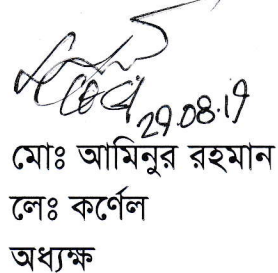 29.08.19
মোঃ আমিনুর রহমান
লেঃ কর্ণেল
অধ্যক্ষ